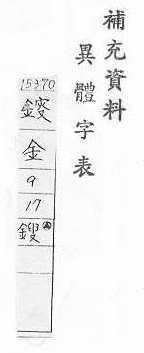 補充資料
異體字表
15370
鋄
金
9
17
鎪